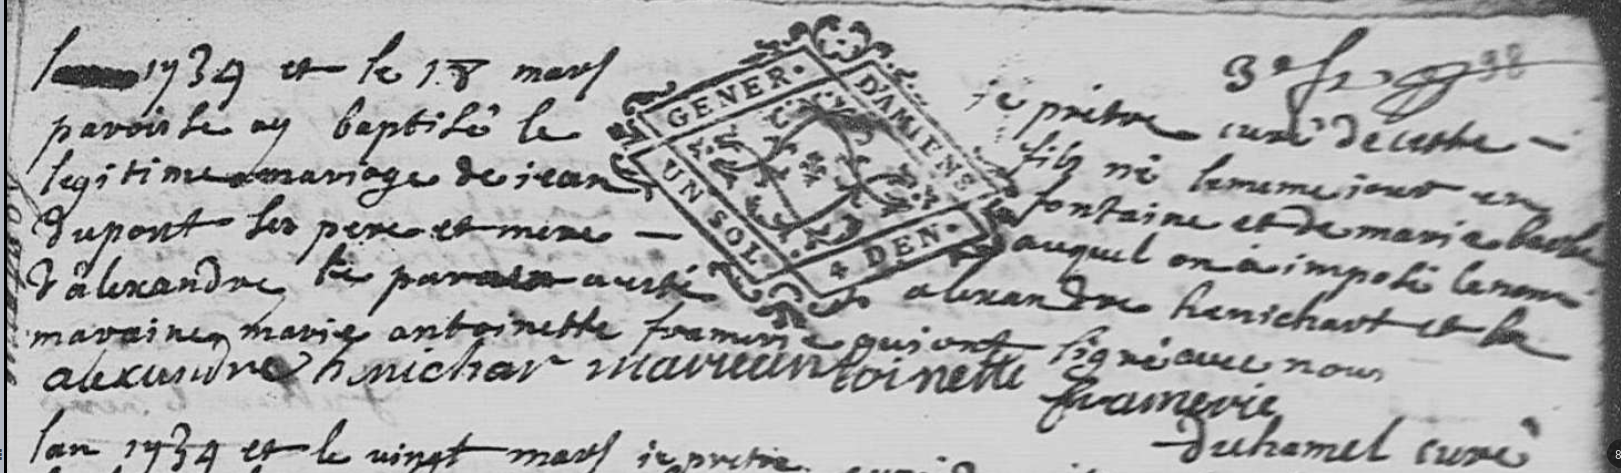 3e
38
lan 1734 et le 18 mars je prêtre curé de cette
paroisse ay baptisé le fils né le meme jour en
legitime mariage de jean fontaine et de marie barbe
dupont ses pere et mere auquel on à imposé le nom
d'âlexandre le parain a esté alexandre henichart et la
maraine marie antoinette framerie qui ont signé avec nous
alexandre henichar marie antoinette
framerie
duhamel curé
GENER. D'AMIENS
UN SOL. 4 DEN.
lan 1734 et le vingt mars je pretre